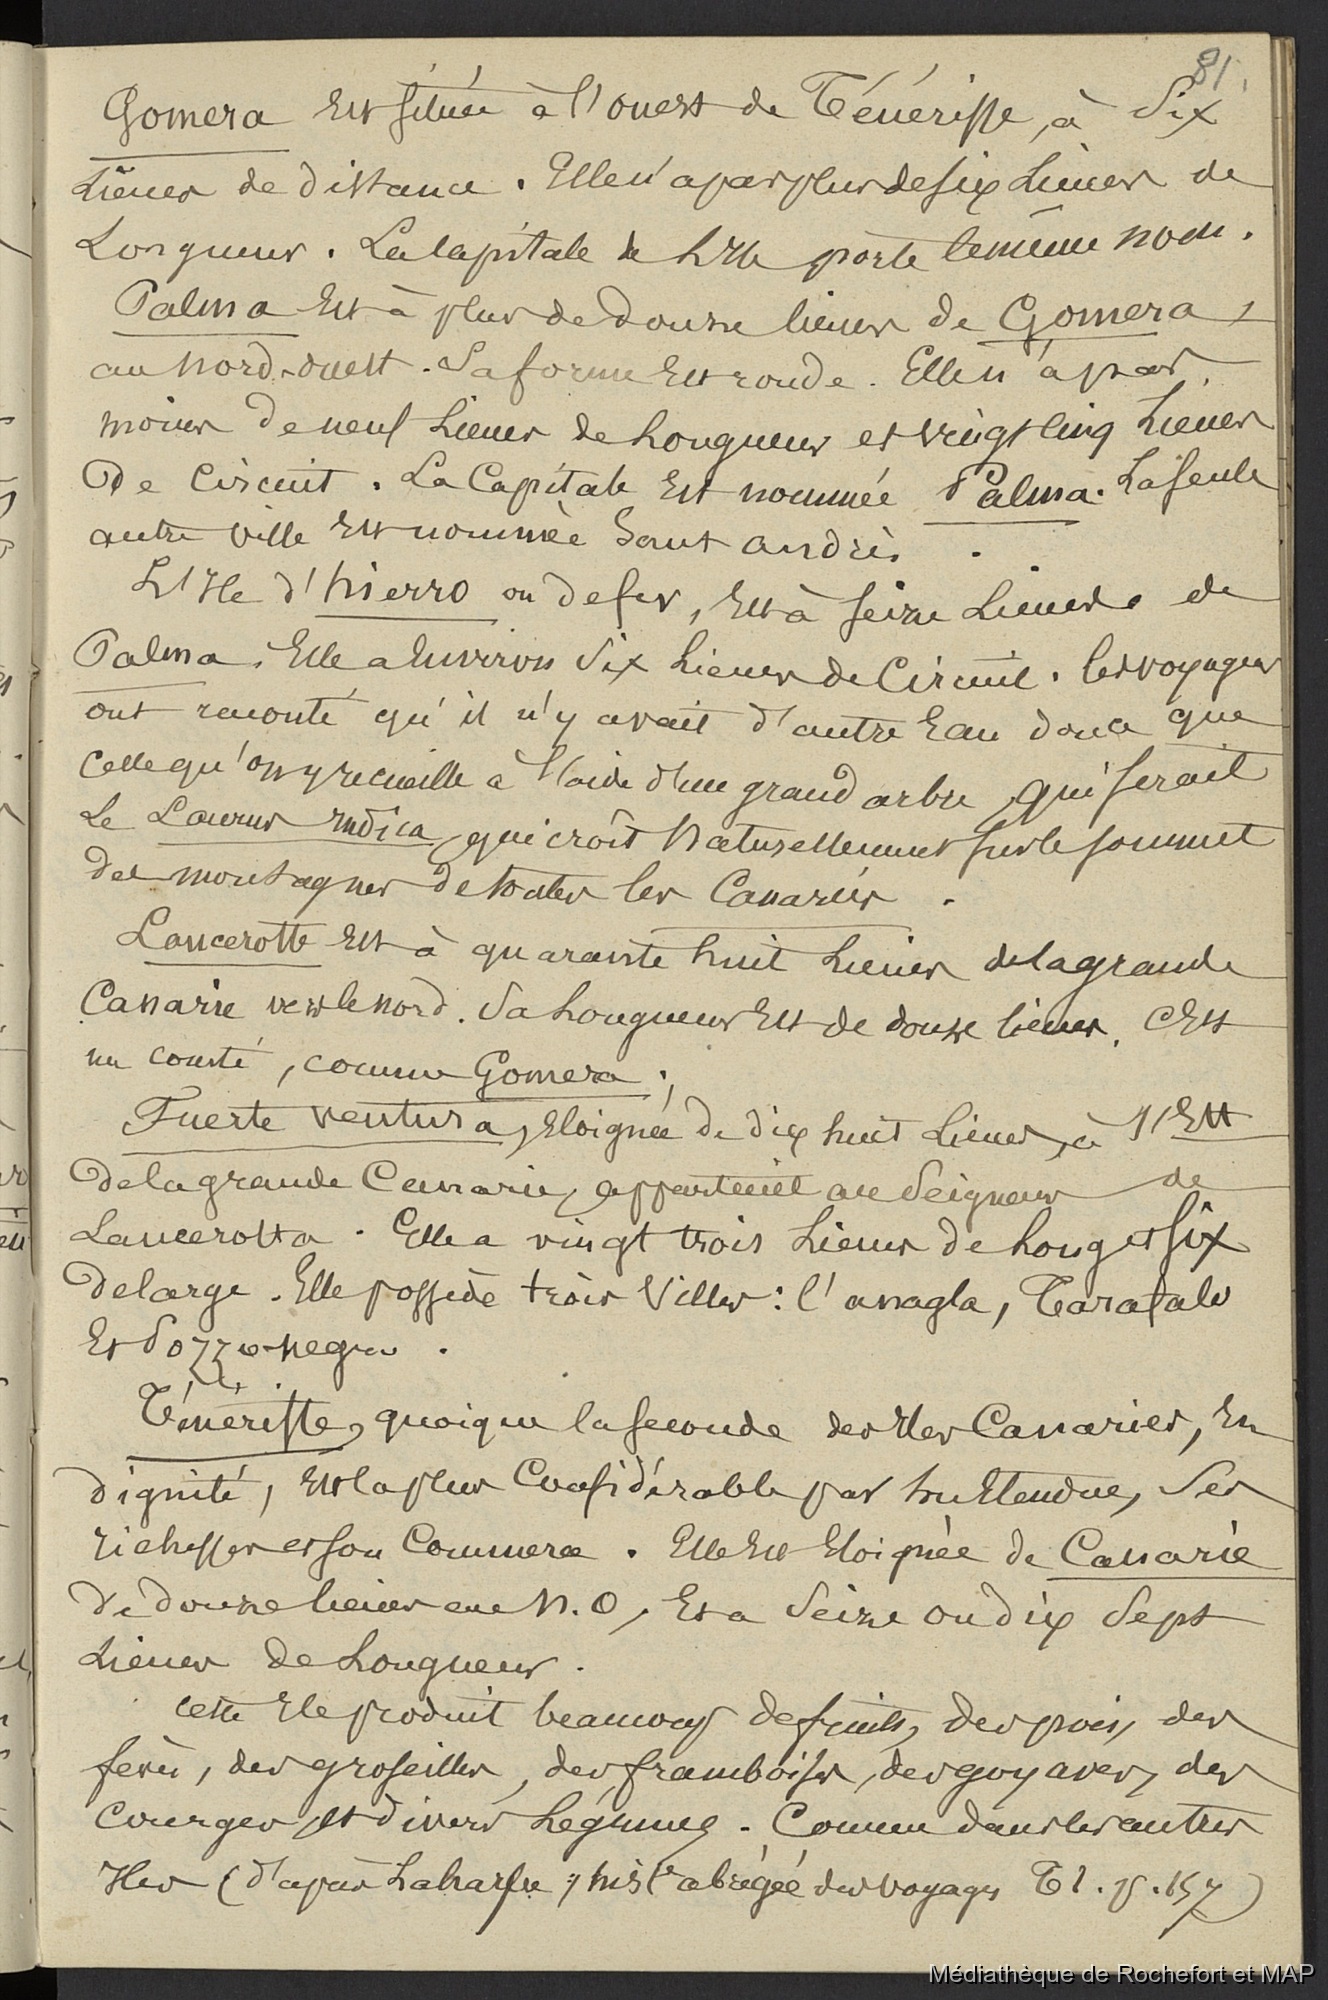 81.
Gomera Est située à l'ouest de Ténériffe, à Six
Lieues de distance. Elle n'a pas plus de six Lieues de
Longueur. La Capitale de l'Ile porte le même nom.
Palma Est à plus de douze lieues de Gomera,
au nord-ouest. Sa forme Est ronde. Elle n'a pas
moins de neuf Lieues de Longueur et vingt cinq Lieues
De Circuit. La Capitale Est nommée Palma. La seule
autre ville Est nommée Sant andrès.
L'Ile d'hierro ou de fer, Est à seize Lieues de
Palma. Elle a Environ Six Lieues de Circuit. les voyageurs
ont raconté qu'il n'y avait d'autre Eau douce que
Celle qu'on y recueille à l'aide d'un grand arbre, qui serait
Le Laurus indica, qui croît Naturellement sur le sommet
des montagnes de toutes les Canaries.
Lancerotte Est à quarante huit Lieues de la grande
Canarie vers le nord. Sa Longueur Est de douze lieues. C'Est
un comté, comme Gomera;
Fuerte ventura, Eloignée de dix huit Lieues, à l'Est
De la grande Canarie, appartenait au Seigneur de
Lancerotta. Elle a vingt trois Lieues de Long et Six
De large. Elle possède trois Villes: l'anagla, Tarafalo
Et Pozzo-negro.
Ténériffe, quoique la seconde des Iles Canaries, En
dignité, Est la plus Considérable par son Etendue, Ses
richesses et son Commerce. Elle Est Eloignée de Canarie
De douze lieues au N.O, Et a Seize ou dix Sept
Lieues de Longueur.
Cette Ile produit beaucoup de fruits, des pois, des
fèves, des groseilles, des framboises, des goyaves, des
Courges, et divers Légumes. Comme dans les autres
Iles (d'après Laharpe, hist abrégée des voyages T 1. p. 157)
Médiathèque de Rochefort et MAP